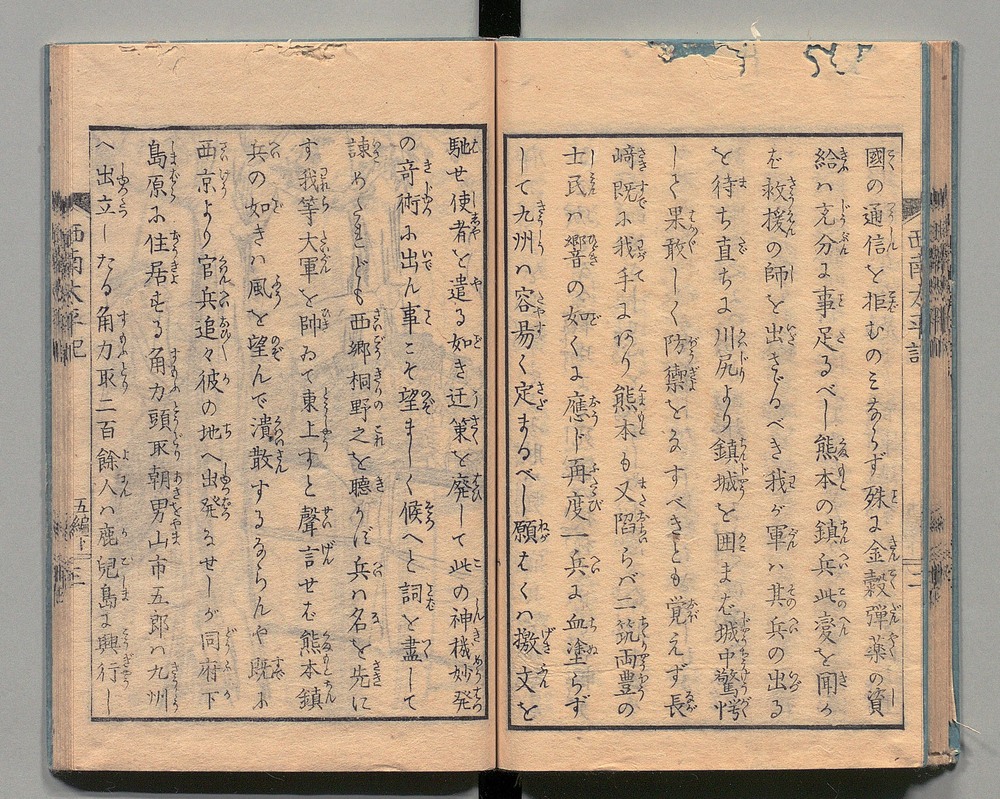 國の通信を拒むのみならず殊に金穀彈薬の資
給ハ充分に事足るべし熊本の鎮兵此変を聞か
ば救援の師を出さゞるべき我が軍ハ其兵の出る
を待ち直ちに川尻より鎮城を囲まば城中驚愕
して果敢しく防禦をなすべきとも覚えず長
崎既に我手にあり熊本も又陥らバ二筑両豊の
士民ハ響の如くに應じ再度一兵に血塗らず
して九州ハ容易く定まるべし願はくハ檄文を
馳せ使者を遣る如き迂策を廃して此の神機妙発
の竒術に出ん事こそ望ましく候へと詞を盡して
諌めたれども西郷桐野之を聴かず兵ハ名を先に
す我等大軍を帥ゐて東上すと聲言せば熊本鎮
兵の如きハ風を望んで潰散するならんや既に
西京より官兵追々彼の地へ出発なせしが同府下
島原に住居せる角力頭取朝男山市五郎ハ九州
へ出立したる角力取二百餘人ハ鹿兒島に興行し
西南太平記
五編下
二
西南太平記